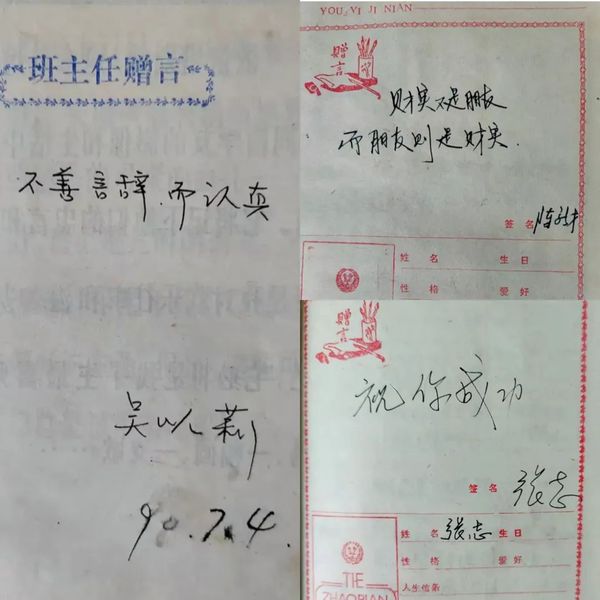 班主任赠言
不善言辞.而认真
吴以莉
90.7.4.
YOU YI JI NIAN
赠言
财实不是朋友
而朋友则是财实.
签名
姓名
生日
性格
爱好
赠言
祝你成功
签名 张志
姓名 张志 生日
性格
爱好
人生信条
TIE
ZHAOPIAN